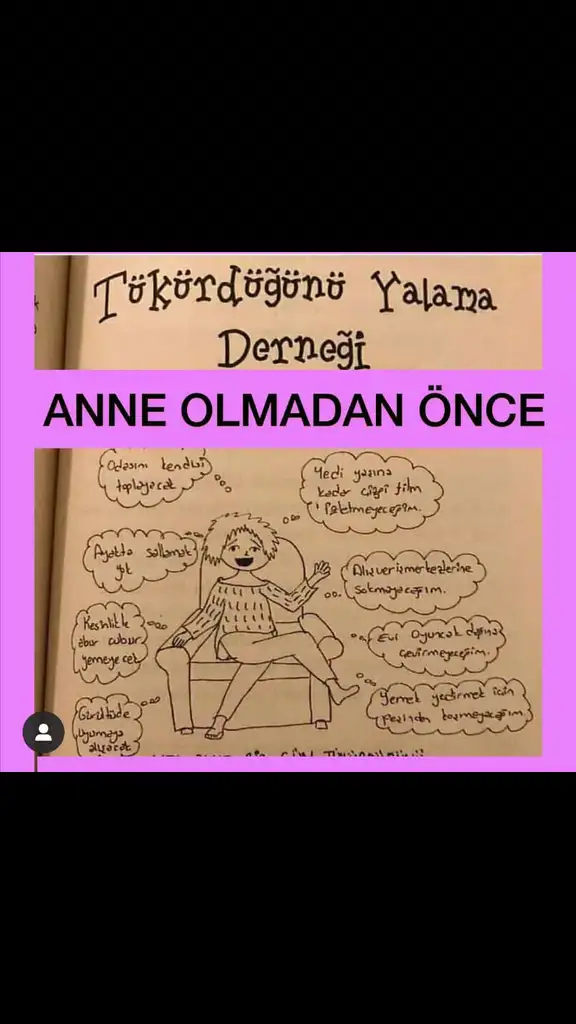 Tükürdüğünü Yalama
Derneği
ANNE OLMADAN ÖNCE
Odasını kendisi
toplayacak
Yedi yaşına
kadar çizgi film
izletmeyeceğim.
Ayakta sallamak
yok
Alışverişmerkezlerine
sokmayacağım.
Kesinlikle
abur cubur
yemeyecek
Evi Oyuncak
çevirmeyeceğim.
Gürültüde
uyumaya
alışacak
Yemek yedirmek için
peşinden koşmayacağım.